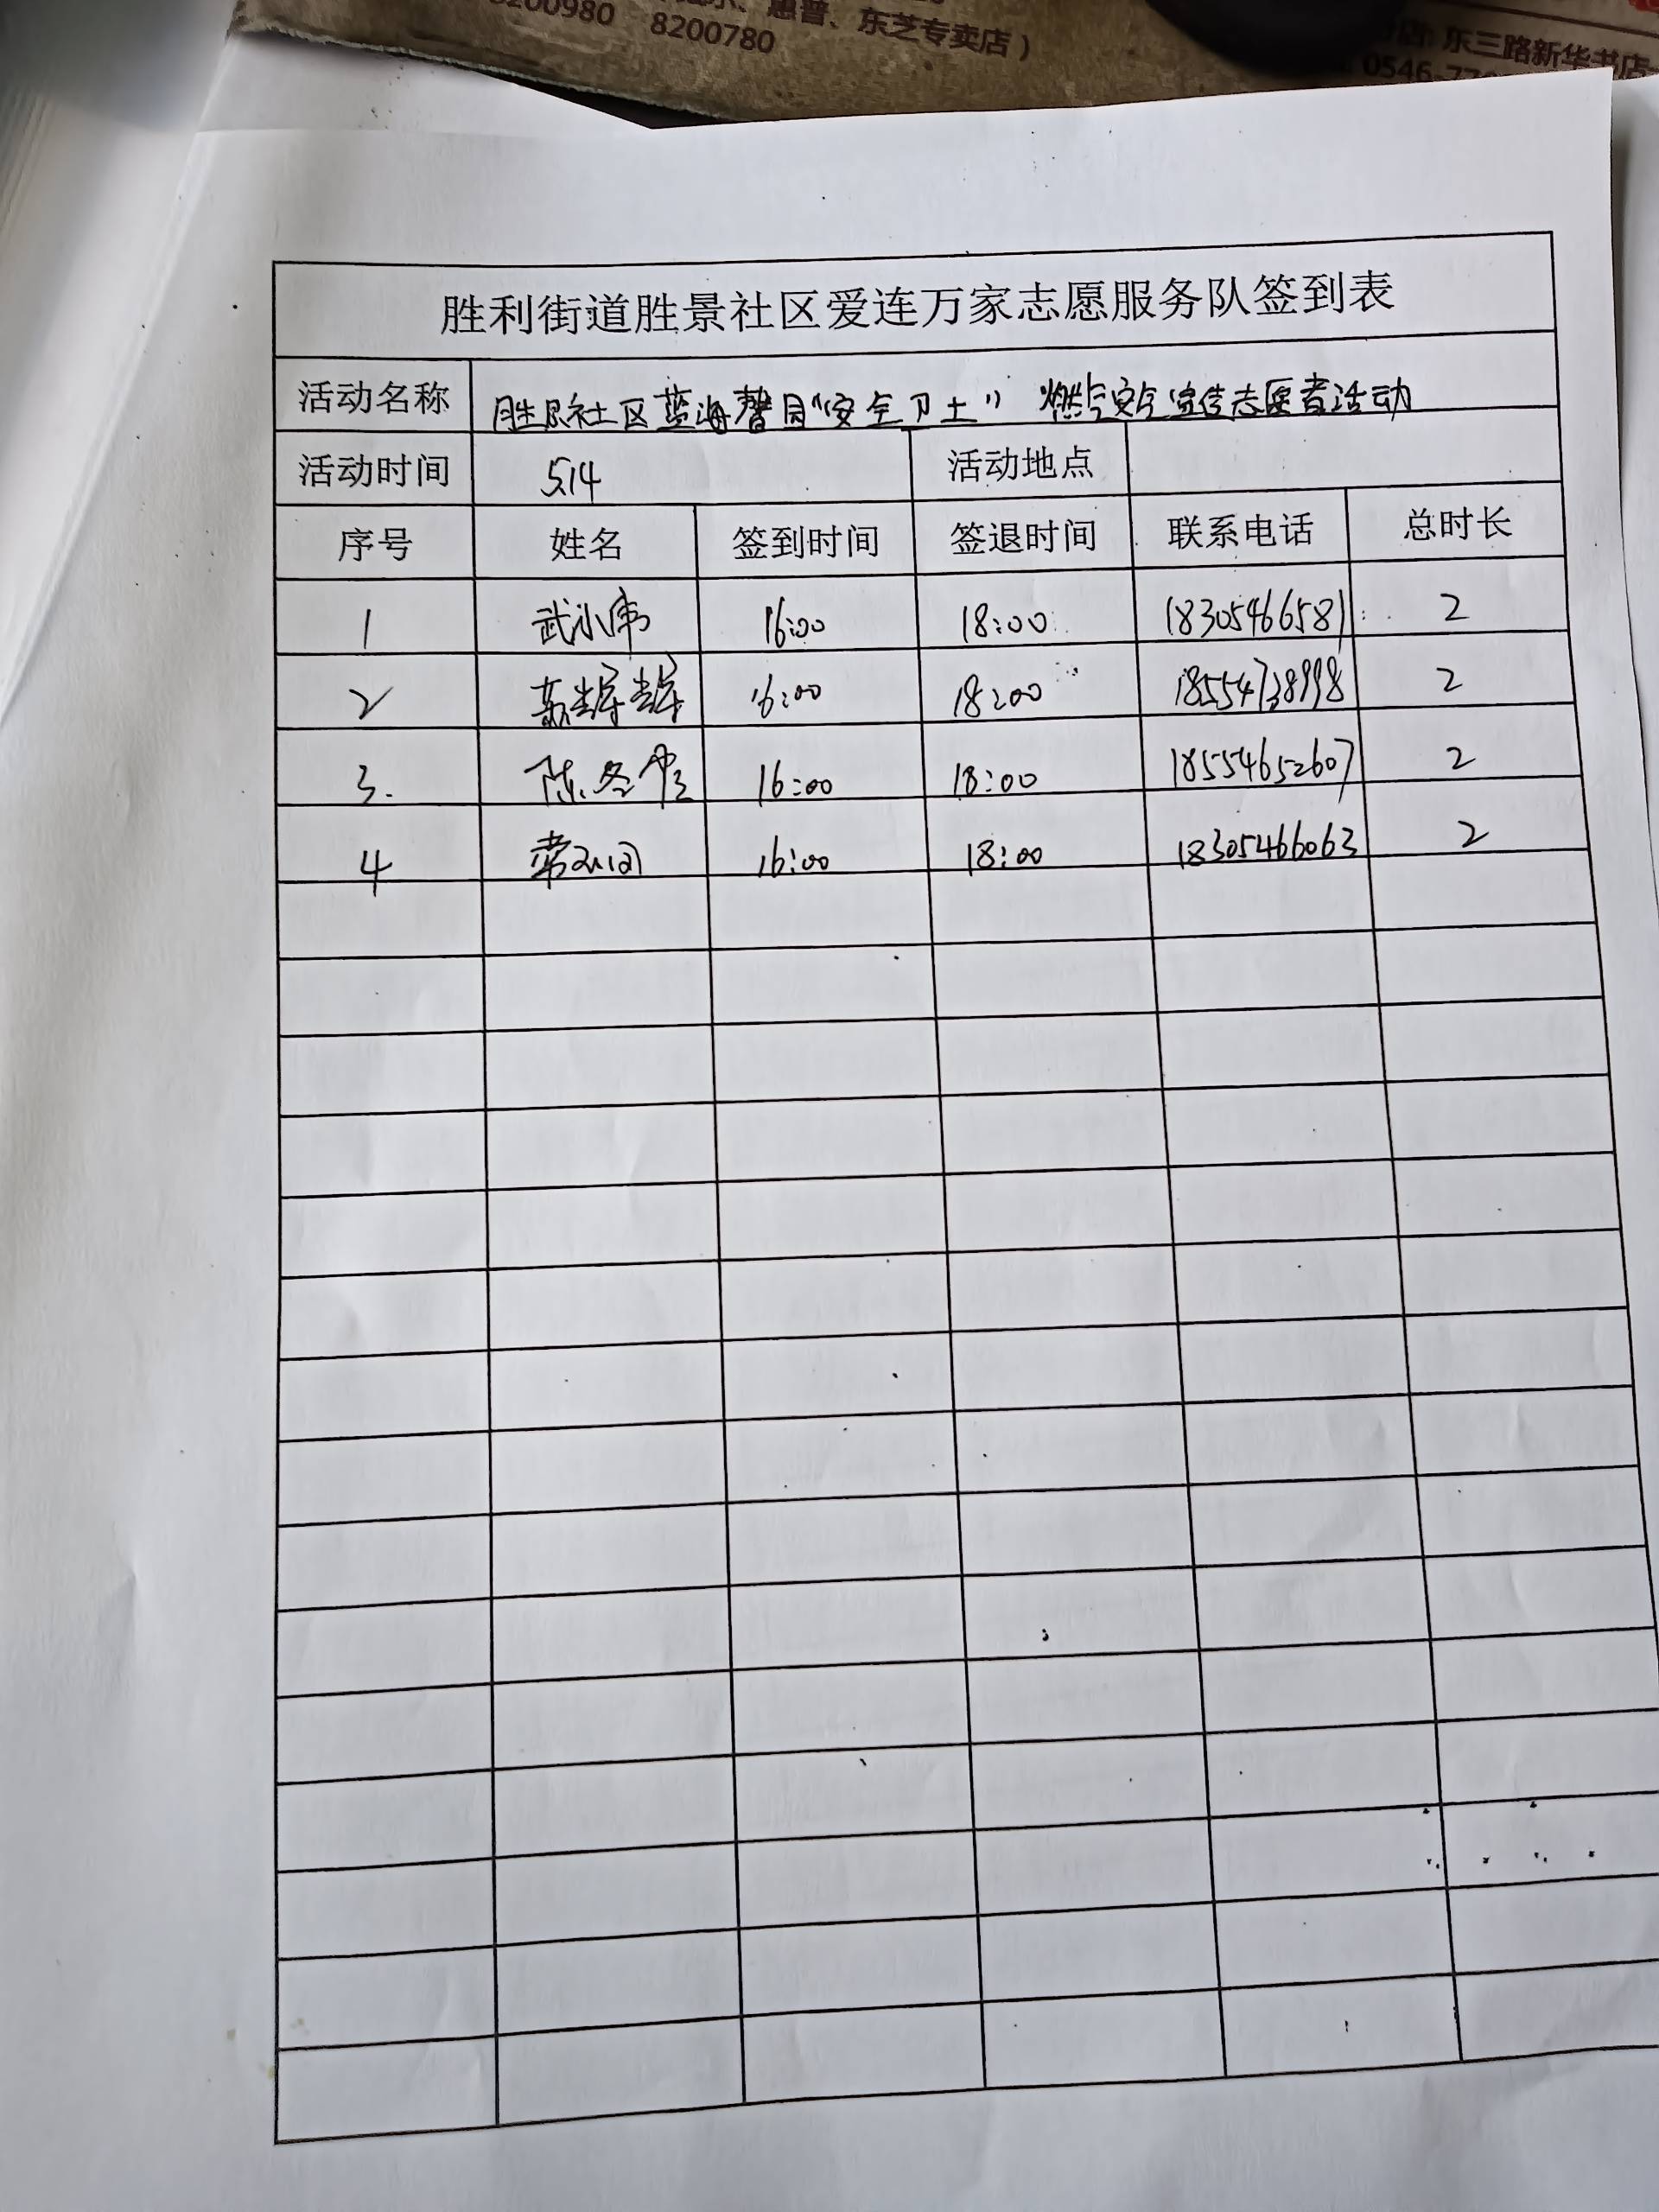 8200980 8200780
惠普、东芝专卖店）
东三路新华书店
0546-77
胜利街道胜景社区爱连万家志愿服务队签到表
活动名称 胜景社区蓝海馨园“安全卫士” 燃气安全宣传志愿者活动
活动时间 5.14 活动地点
序号 姓名 签到时间 签退时间 联系电话 总时长
1 武小伟 16:00 18:00 18305466581 2
2 辉辉 16:00 18:00 18554738998 2
3. 陈冬雪 16:00 18:00 18554652607 2
4 常 16:00 18:00 18305466063 2